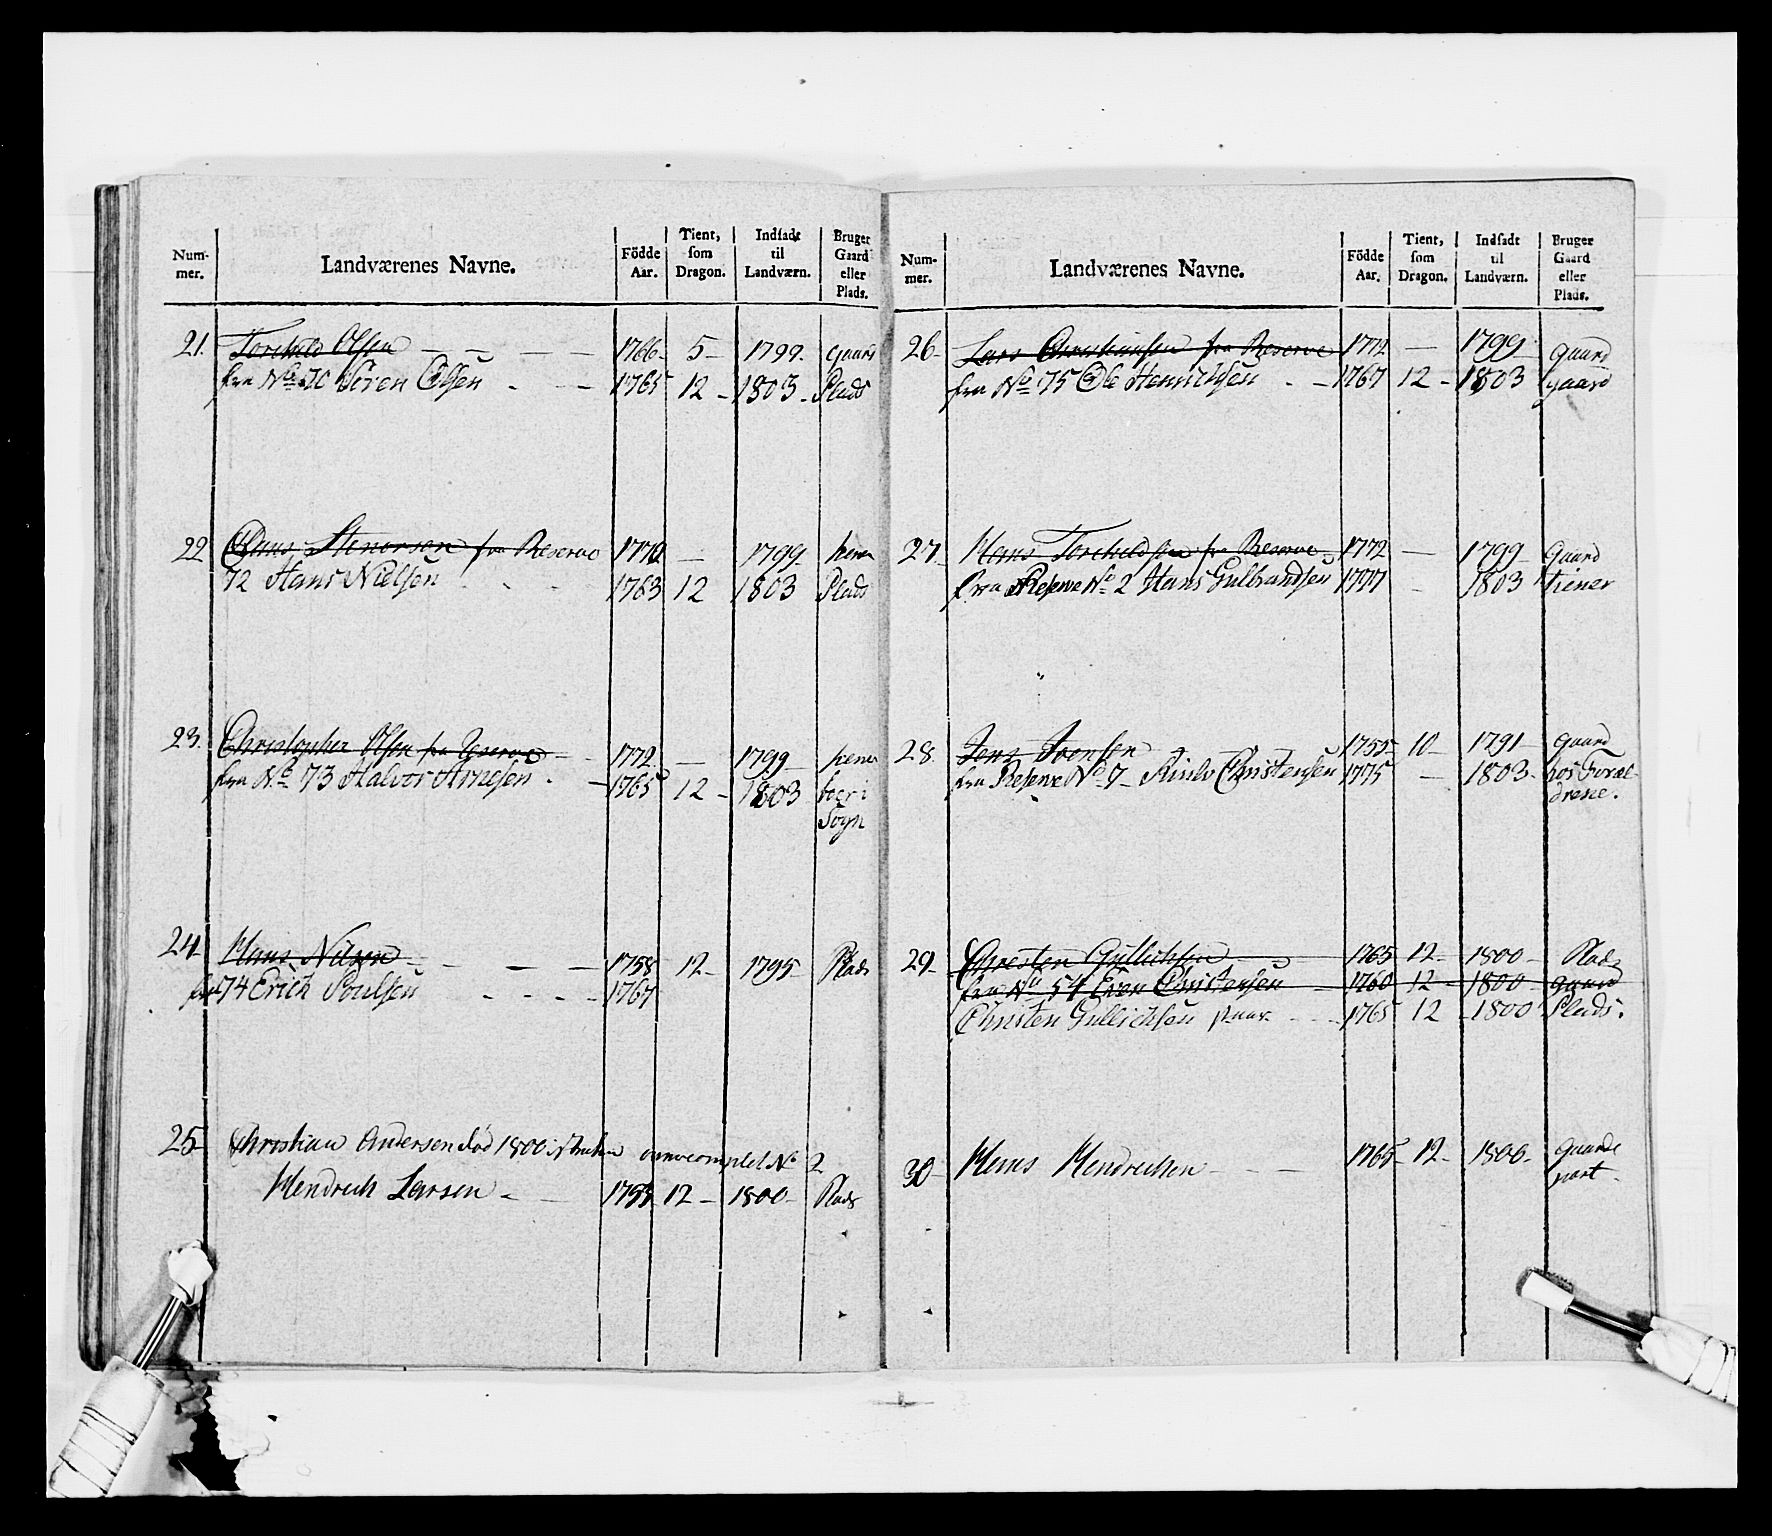 Num-
mer.
Landværenes Navne.
Födde
Aar.
Tient,
som
Dragon.
Indsadt
til
Landværn.
Bruger
Gaard
eller
Plads.
21. Torchild Olsen 1766 5 1799 gaard
fra No 70 Søren Olsen 1765 12 1803 Plads
22 Stenersen fra Reserve 1770 — 1799
72 Hans Nielsen 1763 12 1803 Plads
23. Christopher Olsen fra Reserve 1772 — 1799
fra No 73 Halvor Arnesen 1765 12 1803 boer i
Sogn
24. Hans Nilsen 1758 12 1795 Plads
fra 74 Erich Poulsen 1767
25 Christian Andersen død 1800 No 2
Hendrich Larsen 1755 12 1800 Plads
Num-
mer.
Landværenes Navne.
Födde
Aar.
Tient,
som
Dragon.
Indsadt
til
Landværn.
Bruger
Gaard
eller
Plads.
26 Lars Christiansen fra Reserve 1772 — 1799 gaard
fra No 75 Ole Henrichsen 1767 12 1803 gaard
27. Hans Torchildsen fra Reserve 1772 — 1799 gaard
fra Reserve No 2 Hans Gulbrandsen 1777 1803 tiener
28. Jens Svensen 1755 10 1791 gaard
fra Reserve No 7 Christensen 1775 — 1803 hos Foræl-
drene.
29 Christen Gullichsen 1765 12 1800 Plads
fra No 54 Even Christensen 1760 12 1800 gaard
Christen Gullichsen 1765 12 1800 Plads.
30 Hans Hendrichsen 1765 12 1800 gaarde
part